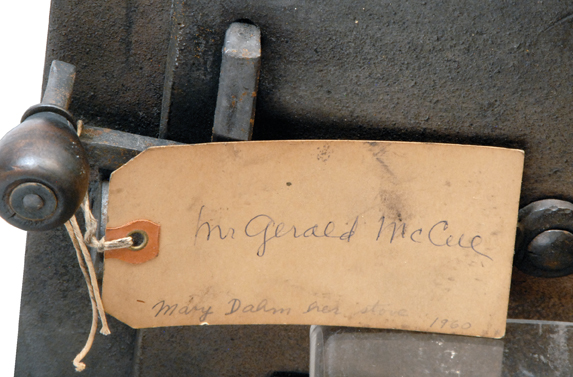 Mr Gerald McCue
Mary Dahm her 1960